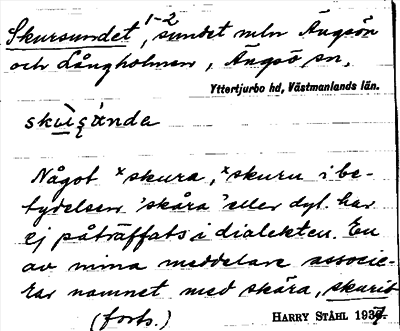 Skursundet 1-2, sundet mln Ängsön
och Långholmen, Ängsö sn,
Yttertjurbo hd, Västmanlands län.
Något ˣskura, ˣskuru i be-
tydelsen 'skåra' eller dyl. har
ej påträffats i dialekten. En
av mina meddelare associe-
rar namnet med skära, skurit
(forts.) HARRY STÅHL 1937.